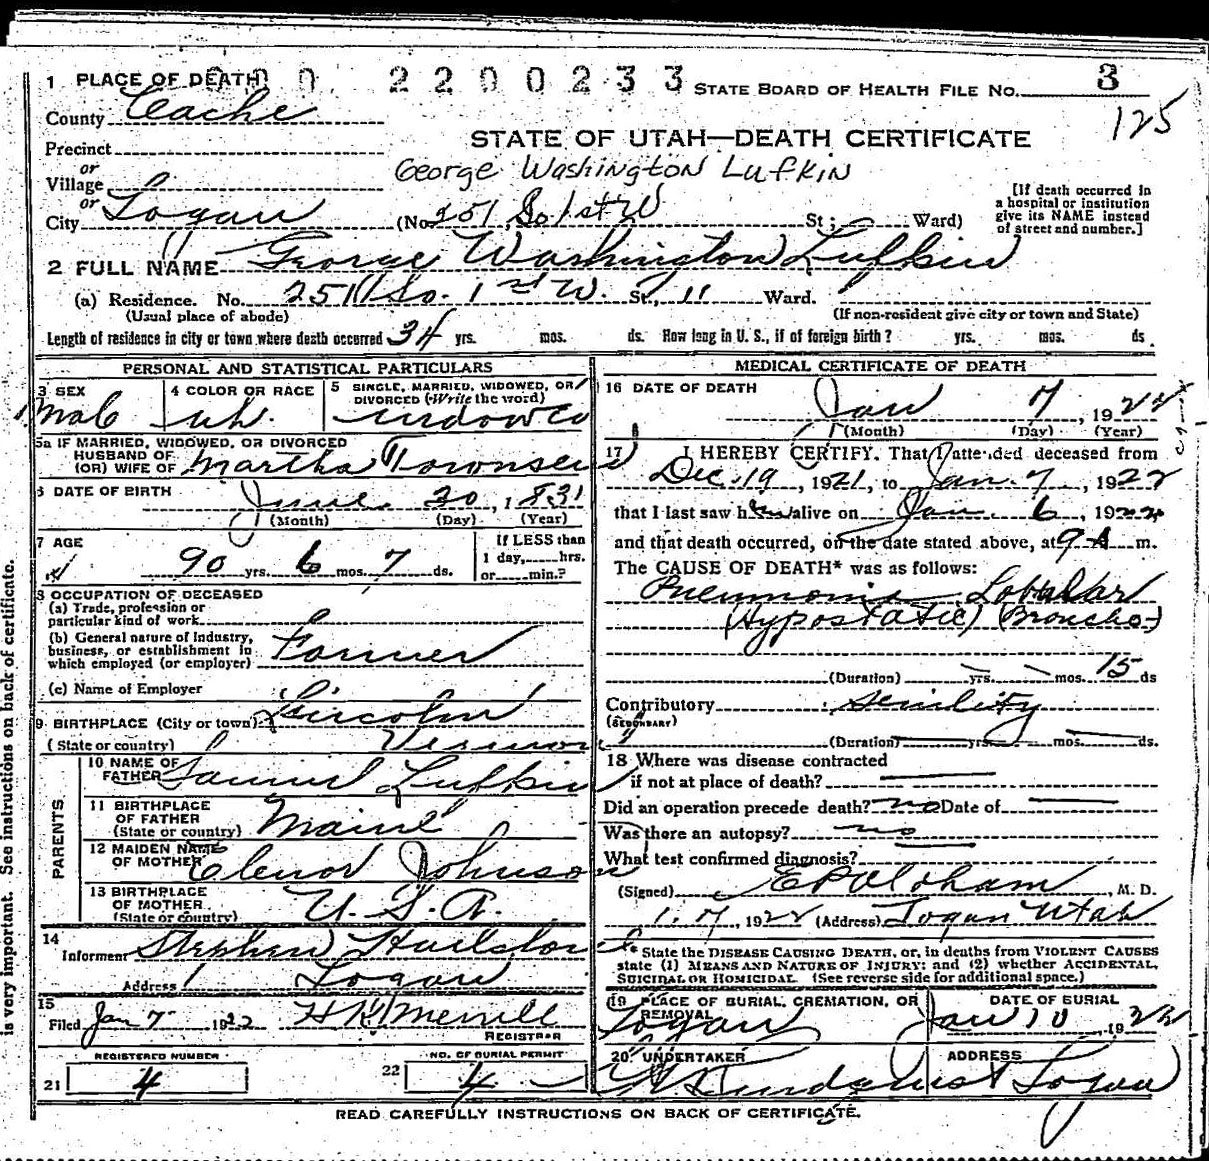 1 PLACE OF DEATH 000 2200233 STATE BOARD OF HEALTH FILE NO. 3
County Cache 125
STATE OF UTAH—DEATH CERTIFICATE
Precinct
George Washington Lufkin
or
Village
or
City Logan (No. 251 So. 1st W St; Ward)
[If death occurred in
a hospital or institution
give its NAME instead
of street and number.]
2 FULL NAME George Washington Lufkin
(a) Residence. No. 251 So. 1st W. St., 11 Ward.
(Usual place of abode) (If non-resident give city or town and State)
Length of residence in city or town where death occurred 34 yrs. mos. ds. How long in U. S., if of foreign birth? yrs. mos. ds.
PERSONAL AND STATISTICAL PARTICULARS
3 SEX Male
4 COLOR OR RACE Wh.
5 SINGLE, MARRIED, WIDOWED, OR
DIVORCED (Write the word)
Widowed
5a IF MARRIED, WIDOWED, OR DIVORCED
HUSBAND OF
(OR) WIFE OF Martha Townsend
6 DATE OF BIRTH June 30, 1831
(Month) (Day) (Year)
7 AGE
90 yrs. 6 mos. 7 ds.
If LESS than
1 day, hrs.
or min.?
8 OCCUPATION OF DECEASED
(a) Trade, profession or
particular kind of work
(b) General nature of industry,
business, or establishment in
which employed (or employer) Farmer
(c) Name of Employer
9 BIRTHPLACE (City or town) Lincoln
(State or country) Vermont
PARENTS
10 NAME OF
FATHER Samuel Lufkin
11 BIRTHPLACE
OF FATHER
(State or country) Maine
12 MAIDEN NAME
OF MOTHER Elenor Johnson
13 BIRTHPLACE
OF MOTHER
(State or country) U. S. A.
14
Informent Stephen
Address Logan
15
Filed Jan 7 1922 H K Merrill
REGISTRAR
REGISTERED NUMBER
21 4
NO. OF BURIAL PERMIT
22 4
MEDICAL CERTIFICATE OF DEATH
16 DATE OF DEATH
Jan 7, 1922
(Month) (Day) (Year)
17 I HEREBY CERTIFY, That I attended deceased from
Dec. 19, 1921, to Jan. 7, 1922
that I last saw him alive on Jan. 6, 1922
and that death occurred, on the date stated above, at 9 A m.
The CAUSE OF DEATH* was as follows:
Pneumonia Lobular
(Hypostatic) (Broncho-)
(Duration) yrs. mos. 15 ds
Contributory senility
(SECONDARY)
(Duration) yrs. mos. ds.
18 Where was disease contracted
if not at place of death?
Did an operation precede death? no Date of
Was there an autopsy? no
What test confirmed diagnosis?
(Signed) E P Oldham, M. D.
1. 7, 1922 (Address) Logan Utah
* State the DISEASE CAUSING DEATH, or, in deaths from VIOLENT CAUSES
state (1) MEANS AND NATURE OF INJURY; and (2) whether ACCIDENTAL,
SUICIDAL OR HOMICIDAL. (See reverse side for additional space.)
19 PLACE OF BURIAL, CREMATION, OR
REMOVAL
Logan
DATE OF BURIAL
Jan 10, 1922
20 UNDERTAKER
Lindquist
ADDRESS
Logan
READ CAREFULLY INSTRUCTIONS ON BACK OF CERTIFICATE.
is very important. See instructions on back of certificate.